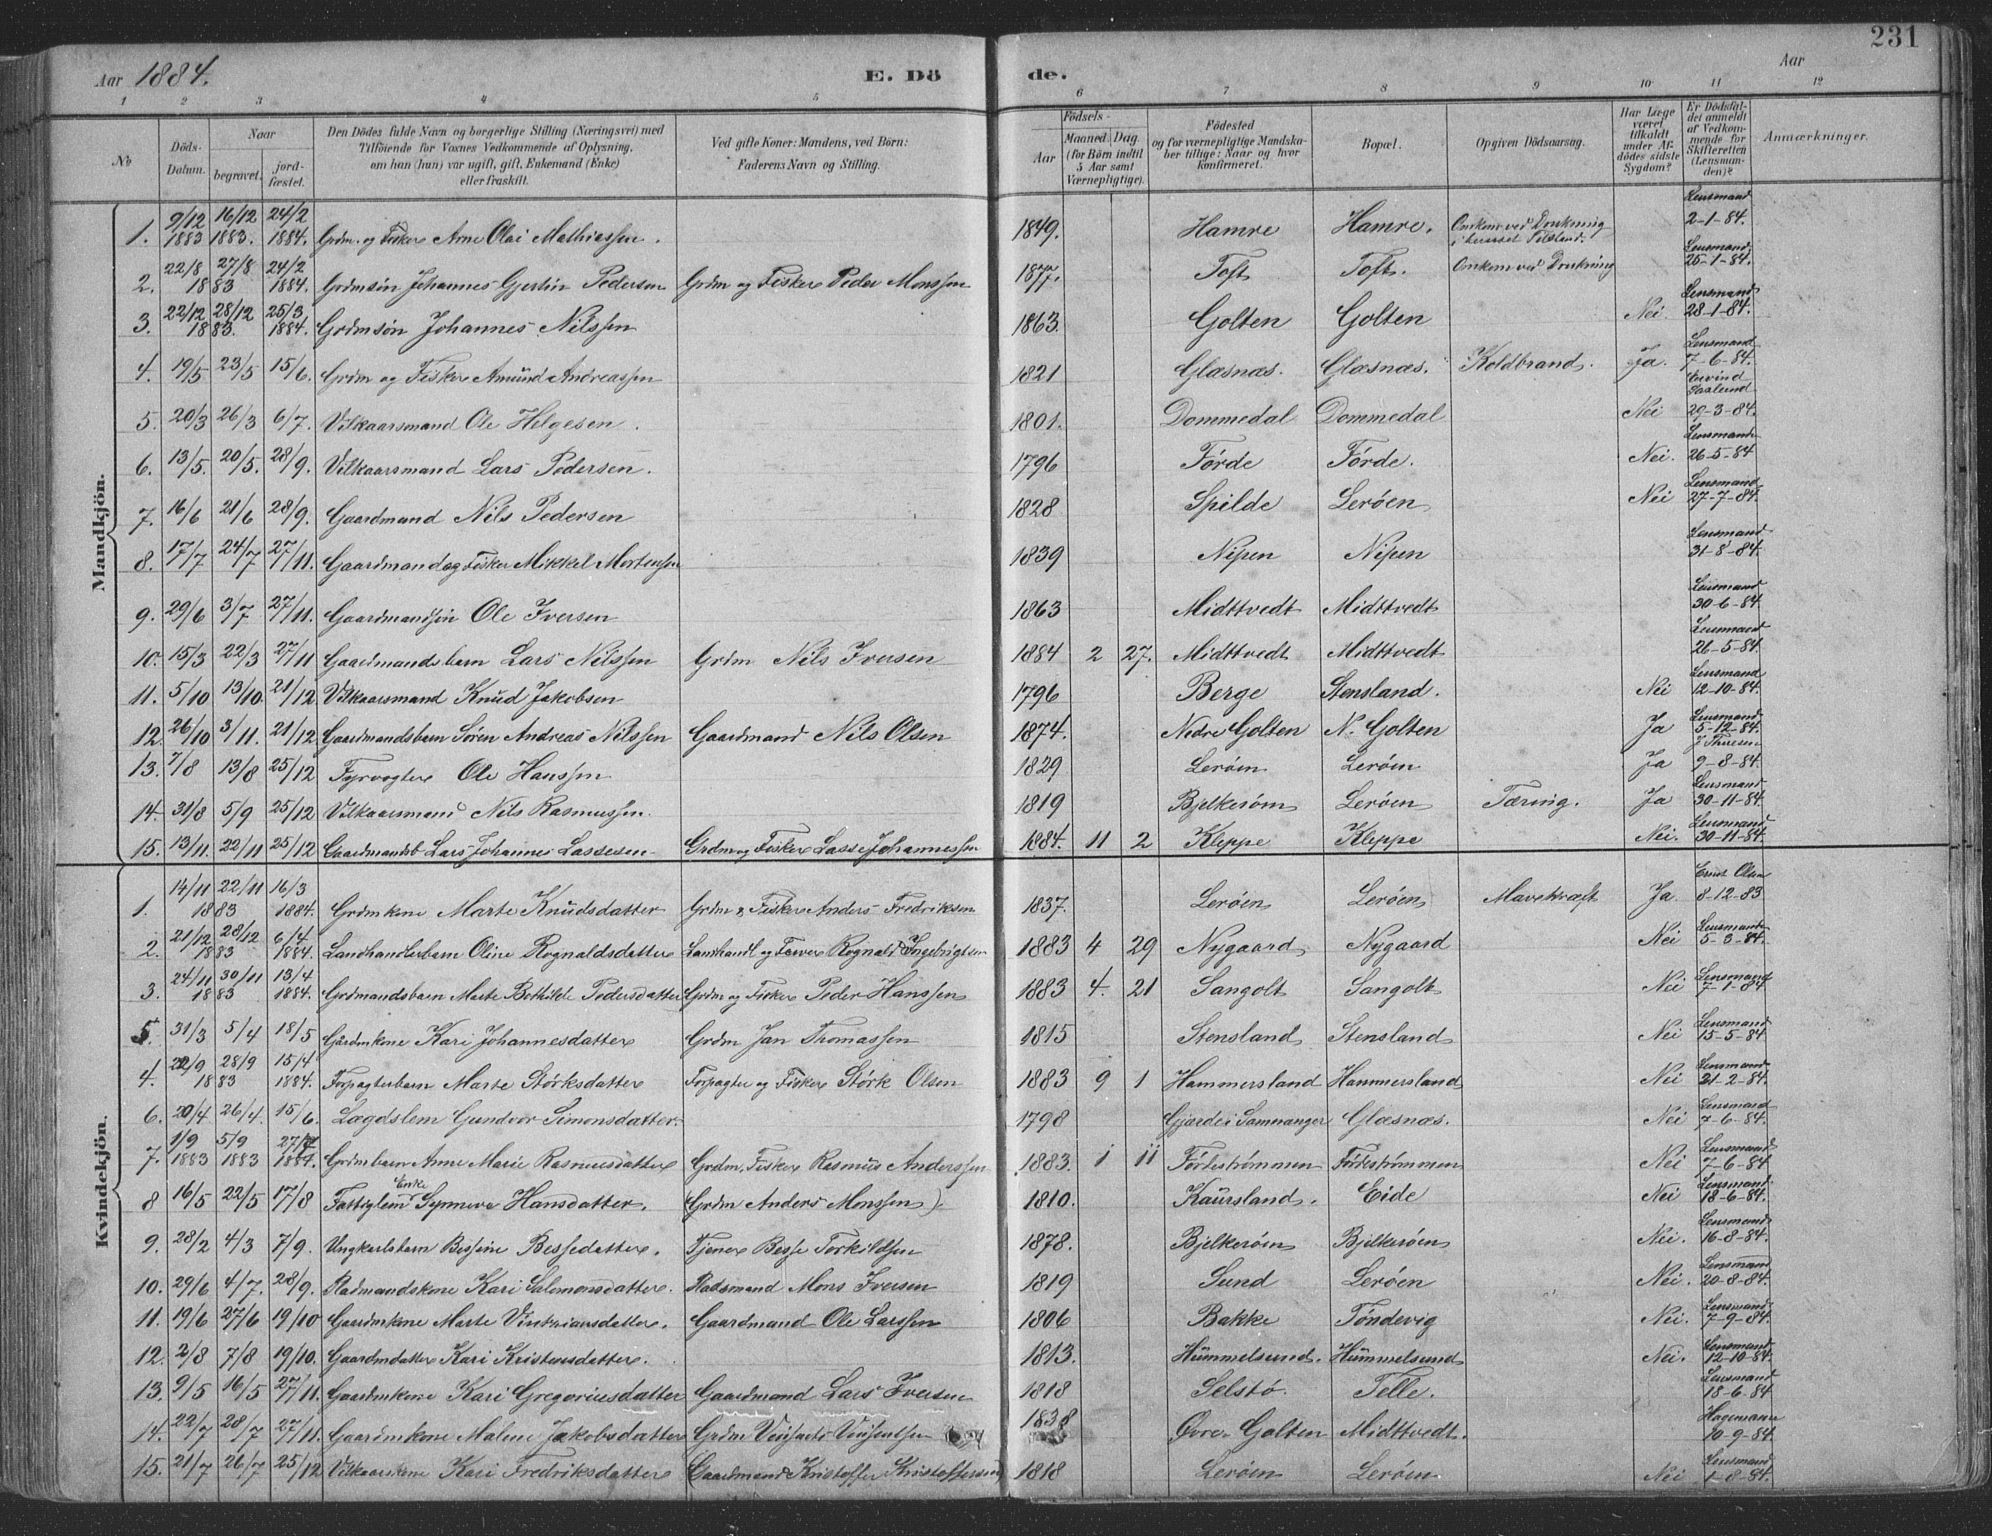 231
Aar 1884. E. Dö de. Aar
1 2 3 4 5 6 7 8 9 10 11 12
No
Döds-Datum.
Naar begravet. jordfæstet.
Den Dödes fulde Navn og borgerlige Stilling (Næringsvei) med Tilföiende for Voxnes Vedkommende af Oplysning, om han (hun) var ugift, gift, Enkemand (Enke) eller fraskilt.
Ved gifte Koner: Mandens, ved Börn: Faderens Navn og Stilling.
Födsels- Aar Maaned. Dag. (for Börn indtil 5 Aar samt Værnepligtige).
Födested og for værnepligtige Mandskaber tillige: Naar og hvor konfirmeret.
Bopæl.
Opgiven Dödsaarsag.
Har Læge været tilkaldt under Afdödes sidste Sygdom?
Er Dödsfaldet anmeldt af Vedkommende for Skifteretten (Lensmanden)?
Anmærkninger.
Mandkjön.
1. 9/12 1883 16/12 1883. 24/2 1884. Grdm. og Fisker Arne Olai Mathiassen. 1849. Hamre Hamre. Omkom ved Drukning Lensmand 2-1-84.
2. 22/8 27/8 1883 24/2 1884. Grdmsøn Johannes Gjertin Pedersen Grdm og Fisker Peder Monssen 1877. Toft Toft. Omkom ved Drukning Lensmand 25-1-84.
3. 22/12 28/12 1883. 25/3 1884. Grdmsøn Johannes Nilssen 1863. Golten Golten Nei Lensmand 28-1-84.
4. 19/5 23/5 15/6. Grdm og Fisker Amund Andreassen 1821 Glæsnæs. Glæsnæs. Koldbrand. Ja. Lensmand 7-6-84.
5. 20/3 26/3 6/7. Vilkaarsmand Ole Helgesen. 1801. Dommedal Dommedal Nei 29-3-84.
6. 13/5. 20/5. 28/9. Vilkaarsmand Lars Pedersen. 1796 Førde Førde. Nei. Lensmand 26-5-84
7. 16/6 21/6 28/9. Gaardmand Nils Pedersen 1828 Spilde Lerøen Nei Lensmand 27-7-84.
8. 17/7 24/7 27/11. Gaardmand og Fisker Mikkel Mortensen 1839 Nipen Nipen Lensmand 31-8-84.
9. 29/6 3/7 27/11. Gaardmandssøn Ole Iversen 1863 Midttvedt Midttvedt Lensmand 30-6-84.
10. 15/3 22/3 27/11 Gaardmandsbarn Lars Nilssen Grdm Nils Iversen 1884 2 27. Midttvedt Midttvedt Lensmand 26-5-84.
11. 5/10 13/10. 21/12 Vilkaarsmand Knud Jakobsen 1796 Berge Stensland. Nei Lensmand 12-10-84.
12. 26/10 3/11. 21/12. Gaardmandsbarn Søren Andreas Nilssen Gaardmand Nils Olsen 1874. Nedre Golten N. Golten Ja Lensmand 5-12-84.
13. 7/8 13/8 25/12 Fyrvogter Ole Hanssen 1829 Lerøen Lerøen Ja 9-8-84.
14. 31/8 5/9 25/12 Vilkaarsmand Nils Rasmussen. 1819 Bjelkerøen Lerøen Tæring. Ja Lensmand 30-11-84.
15. 13/11. 22/11 25/12 Gaardmandsb. Lars Johannes Lassesen Grdm og Fisker Lasse Johannessen 1884. 11 2 Kleppe Kleppe Nei. Lensmand 30-11-84.
Kvindekjön.
1. 14/11 22/11 1883 16/3 1884. Grdmkone Marte Knudsdatter Grdm & Fisker Anders Fredriksen 1837. Lerøen Lerøen Mavekræft Ja Ernst Olsen 8-12-83
2. 21/12 28/12 1883 6/4 1884. Landhandlerbarn Oline Rognaldsdatter Landhandl og Rognald Ingebrigtsen 1883 4 29 Nygaard Nygaard Nei Lensmand 5-3-84.
3. 24/11 30/11 1883 13/4 1884. Grdmandsbarn Marte Bothilde Pedersdatter Grdm og Fisker Peder Hanssen 1883 4. 21 Sangolt Sangolt Nei Lensmand 7-1-84
5. 31/3 5/4 18/5 Gårdmkone Kari Johannesdatter Grdm Jan Thomassen 1815 Stensland Stensland Nei Lensmand 15-5-84.
4. 22/9 28/9 1883 15/4 1884. Forpagterbarn Marte Størksdatter Forpagter og Fisker Størk Olsen 1883 9 1 Hammersland Hammersland Nei Lensmand 21-2-84.
6. 20/4 26/4. 15/6. Lægdslem Gundvor Simonsdatter. 1798 Gjærde i Samnanger Glæsnæs. Nei Lensmand 7-6-84.
7. 1/9 1883 5/9 1883 1884. Grdmbarn Anne Marie Rasmusdatter Grdm. Fisker Rasmus Anderssen 1883. 1 11 Førdestrømmen Førdestrømmen Nei Lensmand 7-6-84
8 16/5 22/5 17/8 Fattiglem Enke Synneve Hansdatter. (Grdm Anders Monssen). 1810. Kaursland. Eide Nei Lensmand 18-6-84.
9. 28/2 4/3 7/9. Ungkarlsbarn Bessine Bessedatter. Tjener Besse Torkildsen 1878. Bjelkerøen Bjelkerøen Nei. Lensmand 16-8-84.
10. 29/6 4/7. 28/9. Radmandskone Kari Salomonsdatter. Radsmand Mons Iversen 1819 Sund Lerøen Nei. Lensmand 20-8-84.
11. 19/6 27/6 19/10 Gaardmkone Marte Gaardmand Ole Larssen 1806 Bakke Tøndevig Nei. Lensmand 7-9-84.
12. 2/8 7/8 19/10. Gaardmdatter Kari Kristensdatter. 1813. Hummelsund. Hummelsund Nei. Lensmand 12-10-84.
13. 9/5 16/5 27/11. Gaardmkone Kari Gregoriusdatter Gaardmand Lars Iversen 1818 Selstø. Telle. Lensmand 18-6-84.
14. 22/7 28/7 27/11. Gaardmkone Malene Jakobsdatter Grdm 1838 Øvre Golten Midttvedt. Hagemann 10-9-84.
15. 21/7 26/7 25/12 Vilkaarskone Kari Fredriksdatter (Gaardmand Kristoffer Kristoffersen 1818 Lerøen Lerøen Nei Lensmand 1-8-84.